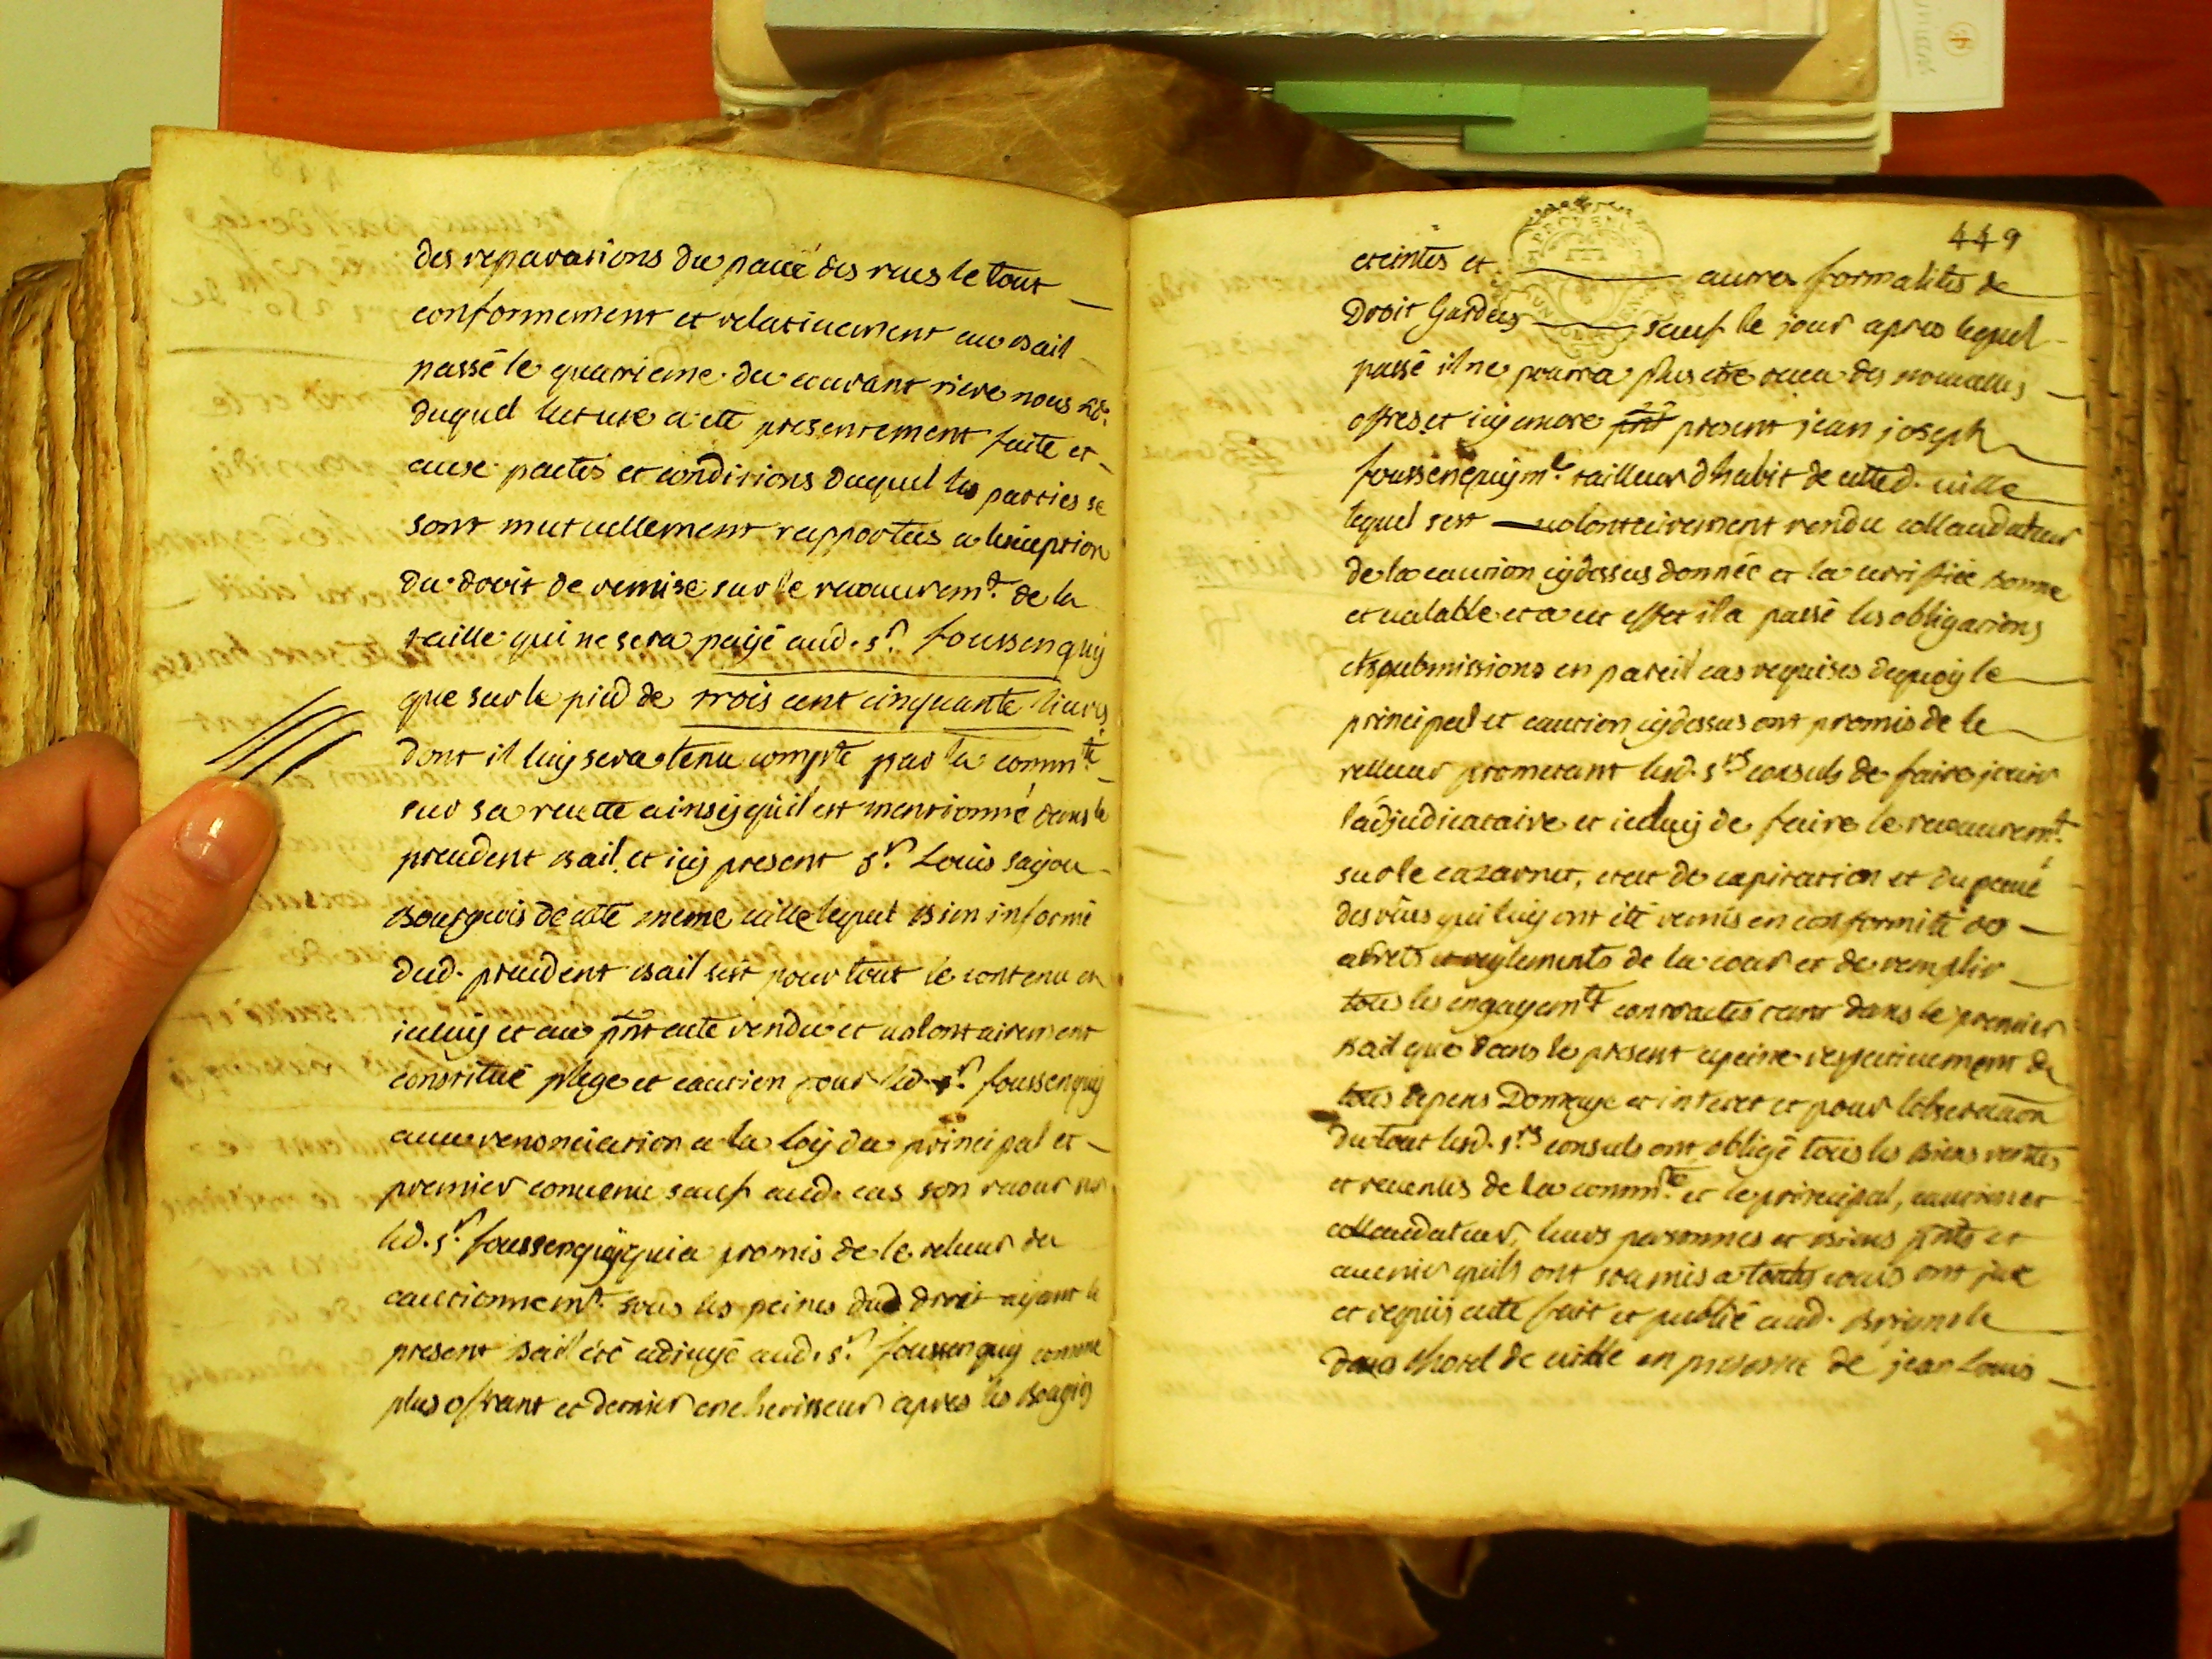 des reparations du pavé des rues le tout
conformement et relativement au bail
passé le quatrieme du courant riere nous no.re
duquel lecture a eté presentement faite et
aux pactes et conditions duquel les parties se
sont mutuellement rapportées a lexception
du droit de remise sur le recouvrem.t de la
taille qui ne sera payé aud. s.r foussenquy
que sur le pied de trois cent cinquante livres
dont il luy sera tenu compte par la comm.té
sur sa recette ainsy quil est mentionné dans le
precedent bail, et icy present s.r Louis sajou
Bourgeois de cette meme ville lequel bien informé
dud. precedent bail sest pour tout le contenu en
iceluy et au pnt acte rendu et volontairement
constitué plege et caution pour led. s.r foussenquy
avec renonciation a la loy du principal et
premier convenu sauf aud. cas son recour sur
led. s.r foussenquy qui a promis de le relever du
cautionnem.t sous les peines dud droit ayant le
present bail été adiugé aud. s.r foussenquy comme
plus offrant et dernier encherisseur apres les Bougies
449
eteintes et autres formalités de
Droit Gardées sauf le jour apres lequel
passé il ne pourra plus etre des nouvelles
offres et icy encore pnt present jean joseph
foussenquy m.e tailleur dhabit de cette d. ville
lequel sest volontairement rendu collaudateur
de la caution cydessus donnée et la certifiée bonne
et valable et a cet effet il a passé les obligations
et submissions en pareil cas requises dequoy le
principal et caution cydessus ont promis de le
relever prometant lesd. s.rs consuls de faire jouir
ladjudicataire et iceluy de faire le recouvrem.t
sur le cazarnet, etat de capitation et du pavé
des rües qui luy ont été remis en conformité des
arrets et reglements de la cour et de remplir
tous les engagem.ts contractés tant dans le premier
bail que dans le present a peine respectivement de
tous depens Domage et interet et pour lobservaon
du tout lesd. s.rs consuls ont obligé tous les biens rentes
et revenus de la comm.té et le principal, caution et
collaudateur, leurs personnes et biens pnts et
avenir quils ont soumis a toutes cours ont juré
et requis acte fait et publié aud. Brignole
dans lhotel de ville en presence de jean Louis